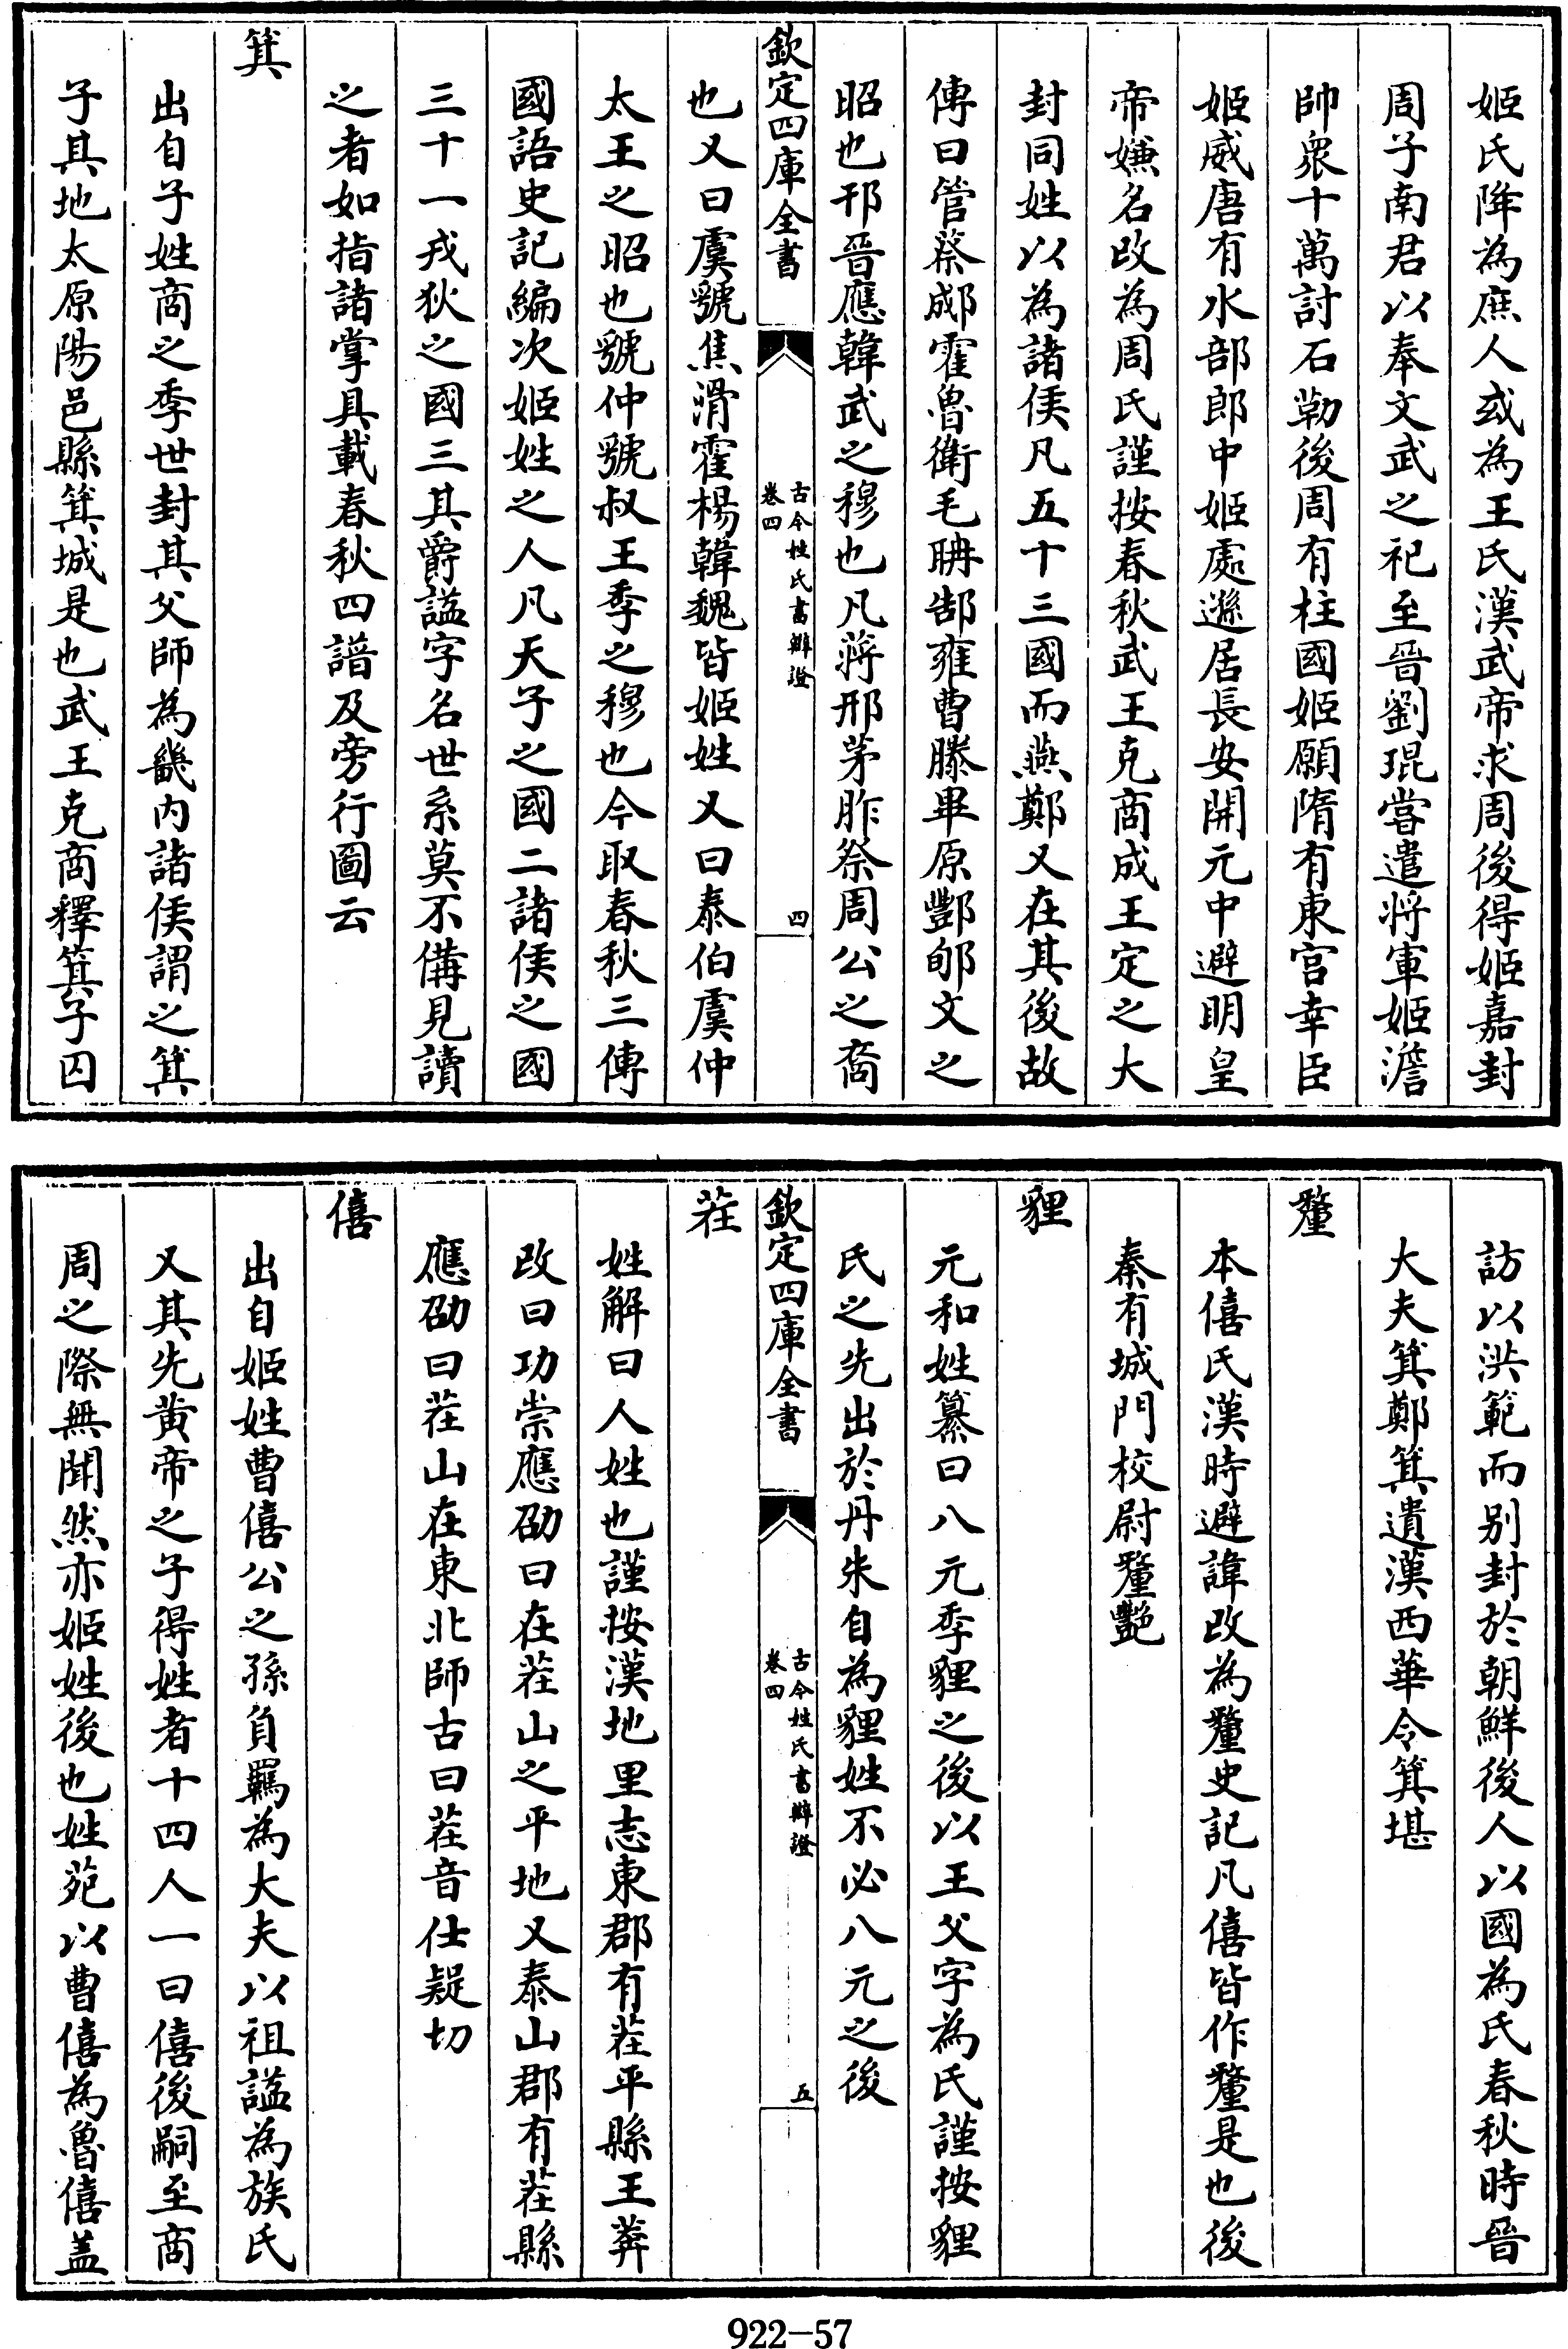 姬氏降為庶人或為王氏漢武帝求周後得姬嘉封
周子南君以奉文武之祀至晉劉琨嘗遣將軍姬澹
帥衆十萬討石勒後周有柱國姬願隋有東宫幸臣
姬威唐有水部郎中姬處遜居長安開元中避明皇
帝嫌名改為周氏謹按春秋武王克商成王定之大
封同姓以為諸侯凡五十三國而燕鄭又在其後故
傳曰管蔡郕霍魯衛毛聃郜雍曹滕畢原酆郇文之
昭也邘晉應韓武之穆也凡蔣邢茅胙祭周公之裔
欽定四庫全書
古今姓氏書辯證
卷四
四
也又曰虞虢焦滑霍楊韓魏皆姬姓又曰泰伯虞仲
太王之昭也虢仲虢叔王季之穆也今取春秋三傳
國語史記編次姬姓之人凡天子之國二諸侯之國
三十一戎狄之國三其爵謚字名世系莫不備見讀
之者如指諸掌具載春秋四譜及旁行圖云
箕
出自子姓商之季世封其父師為畿内諸侯謂之箕
子其地太原陽邑縣箕城是也武王克商釋箕子囚
訪以洪範而别封於朝鮮後人以國為氏春秋時晉
大夫箕鄭箕遺漢西華令箕堪
釐
本僖氏漢時避諱改為釐史記凡僖皆作釐是也後
秦有城門校尉釐艷
貍
元和姓纂曰八元季貍之後以王父字為氏謹按貍
氏之先出於丹朱自為貍姓不必八元之後
欽定四庫全書
古今姓氏書辯證
卷四
五
茬
姓解曰人姓也謹按漢地里志東郡有茬平縣王莽
改曰功崇應劭曰在茬山之平地又泰山郡有茬縣
應劭曰茬山在東北師古曰茬音仕疑切
僖
出自姬姓曹僖公之孫負羈為大夫以祖謚為族氏
又其先黄帝之子得姓者十四人一曰僖後嗣至商
周之際無聞然亦姬姓後也姓苑以曹僖為魯僖盖
922-57